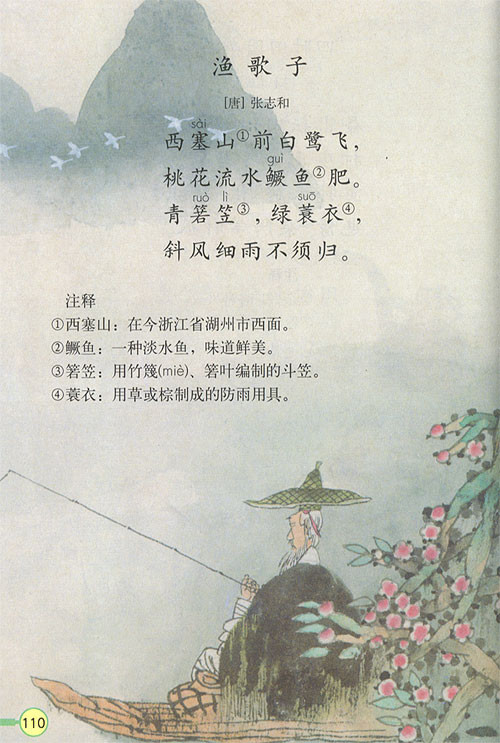 渔歌子
[唐] 张志和
sài
西塞山①前白鹭飞，
guì
桃花流水鳜鱼②肥。
ruò lì suō
青箬笠③，绿蓑衣④，
斜风细雨不须归。
注释
①西塞山：在今浙江省湖州市西面。
②鳜鱼：一种淡水鱼，味道鲜美。
③箬笠：用竹篾(miè)、箬叶编制的斗笠。
④蓑衣：用草或棕制成的防雨用具。
110